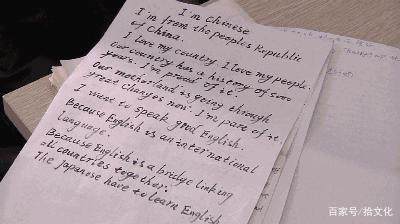 I'm Chinese
I'm from the people's Republic
of China.
I love my country I love my people.
Our country has a history of 5000
years. I'm proud of it.
Our motherland is going through
great changes now. I'm part of it.
I want to speak good English.
Because English is an international
language.
Because English is a bridge linking
all countries together.
The Japanese have to learn English
百家号/拾文化